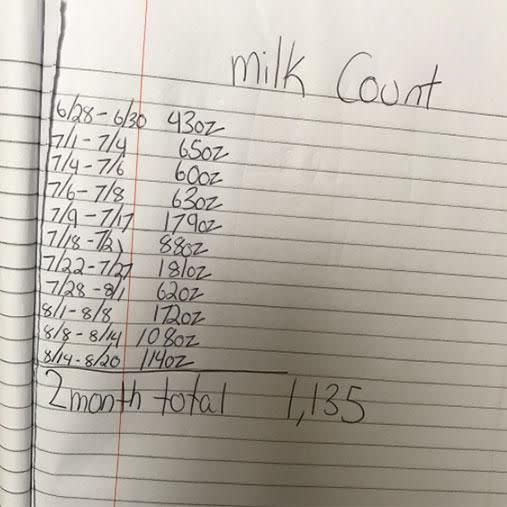 milk Count
6/28-6/30 43oz
7/1-7/4 65oz
7/4-7/6 60oz
7/6-7/8 63oz
7/9-7/17 179oz
7/18-7/21 88oz
7/22-7/27 181oz
7/28-8/1 62oz
8/1-8/8 172oz
8/8-8/14 108oz
8/14-8/20 114oz
2month total 1,135